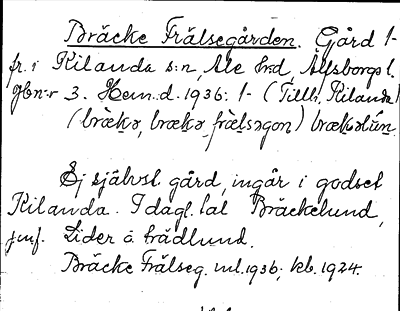 Bräcke Frälsegården. Gård 1-
fr. i Kilanda s:n, Ale hrd, Älfsborgs l.
gbn:r 3. Hem. d. 1936: 1- (Tillh. Kilanda)
(bræ̀kə, bræ̀kə frælsəgon) brækəlún
Ej självst. gård, ingår i godset
Kilanda. I dagl. tal Bräckelund,
jmf. Lider o. trädlund.
Bräcke Frälseg. ml. 1936; kb. 1924.